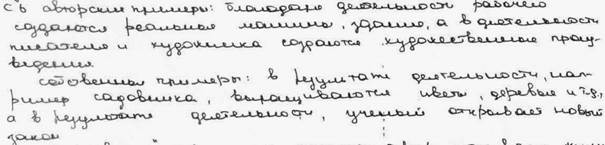 с 5 авторские примеры: благодаря деятельности рабочего
создаются реальные машины, здания, а в деятельности
писателя и художника создаются художественные произ-
ведения.
собственные примеры: в результате деятельности, нап-
ример садовника, выращиваются цветы, деревья и т.д.,
а в результате деятельности, ученый открывает новый
закон